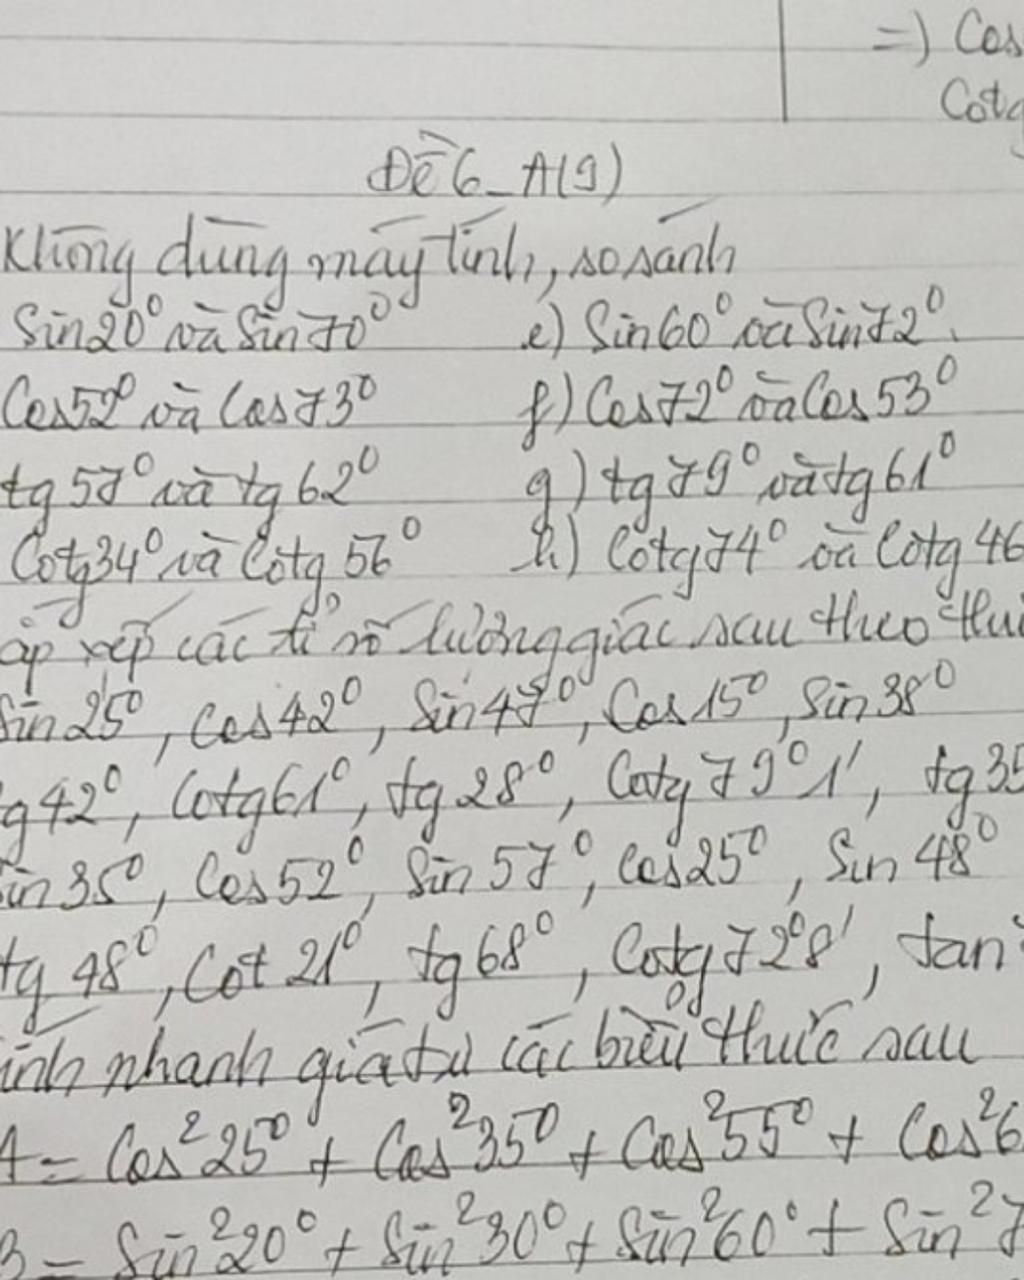 =) Cos
Cotg
Đề 6_A(9)
Không dùng máy tính, so sánh
Sin20⁰ và Sin70⁰ e) Sin60⁰ và Sin72⁰.
Cos52⁰ và Cos73⁰ f) Cos72⁰ và Cos53⁰
tg57⁰ và tg62⁰ g) tg79⁰ và tg61⁰
Cotg34⁰ và Cotg56⁰ h) Cotg74⁰ và Cotg46
ắp xếp các tỉ số lượng giác sau theo thứ
Sin25⁰, Cos42⁰, Sin47⁰, Cos15⁰, Sin38⁰
g42⁰, Cotg61⁰, tg28⁰, Cotg79⁰1', tg35
Sin35⁰, Cos52⁰, Sin57⁰, Cos25⁰, Sin48⁰
tg48⁰, Cot21⁰, tg68⁰, Cotg72⁰8', tan
ính nhanh giá trị các biểu thức sau
A = Cos²25⁰ + Cos²35⁰ + Cos²55⁰ + Cos²6
B = Sin²20⁰ + Sin²30⁰ + Sin²60⁰ + Sin²7